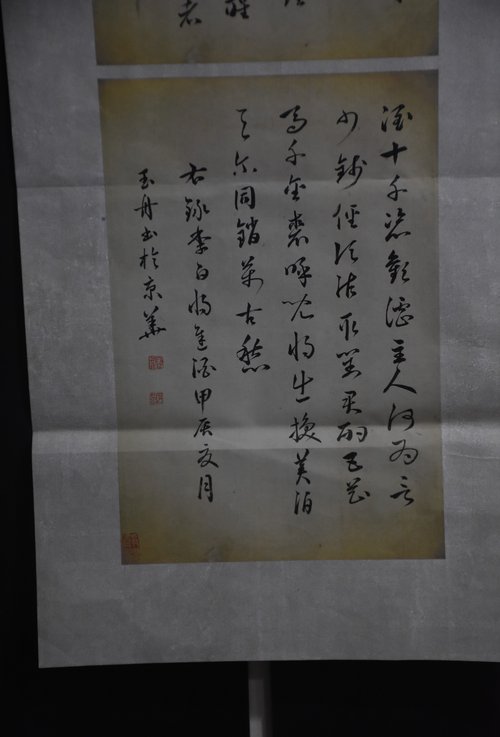 者
酒十千恣歡謔主人何为言
少錢徑須沽取對君酌五花
馬千金裘呼兒將出換美酒
与尔同銷萬古愁
右錄李白將進酒甲辰夏月
玉丹书於京華